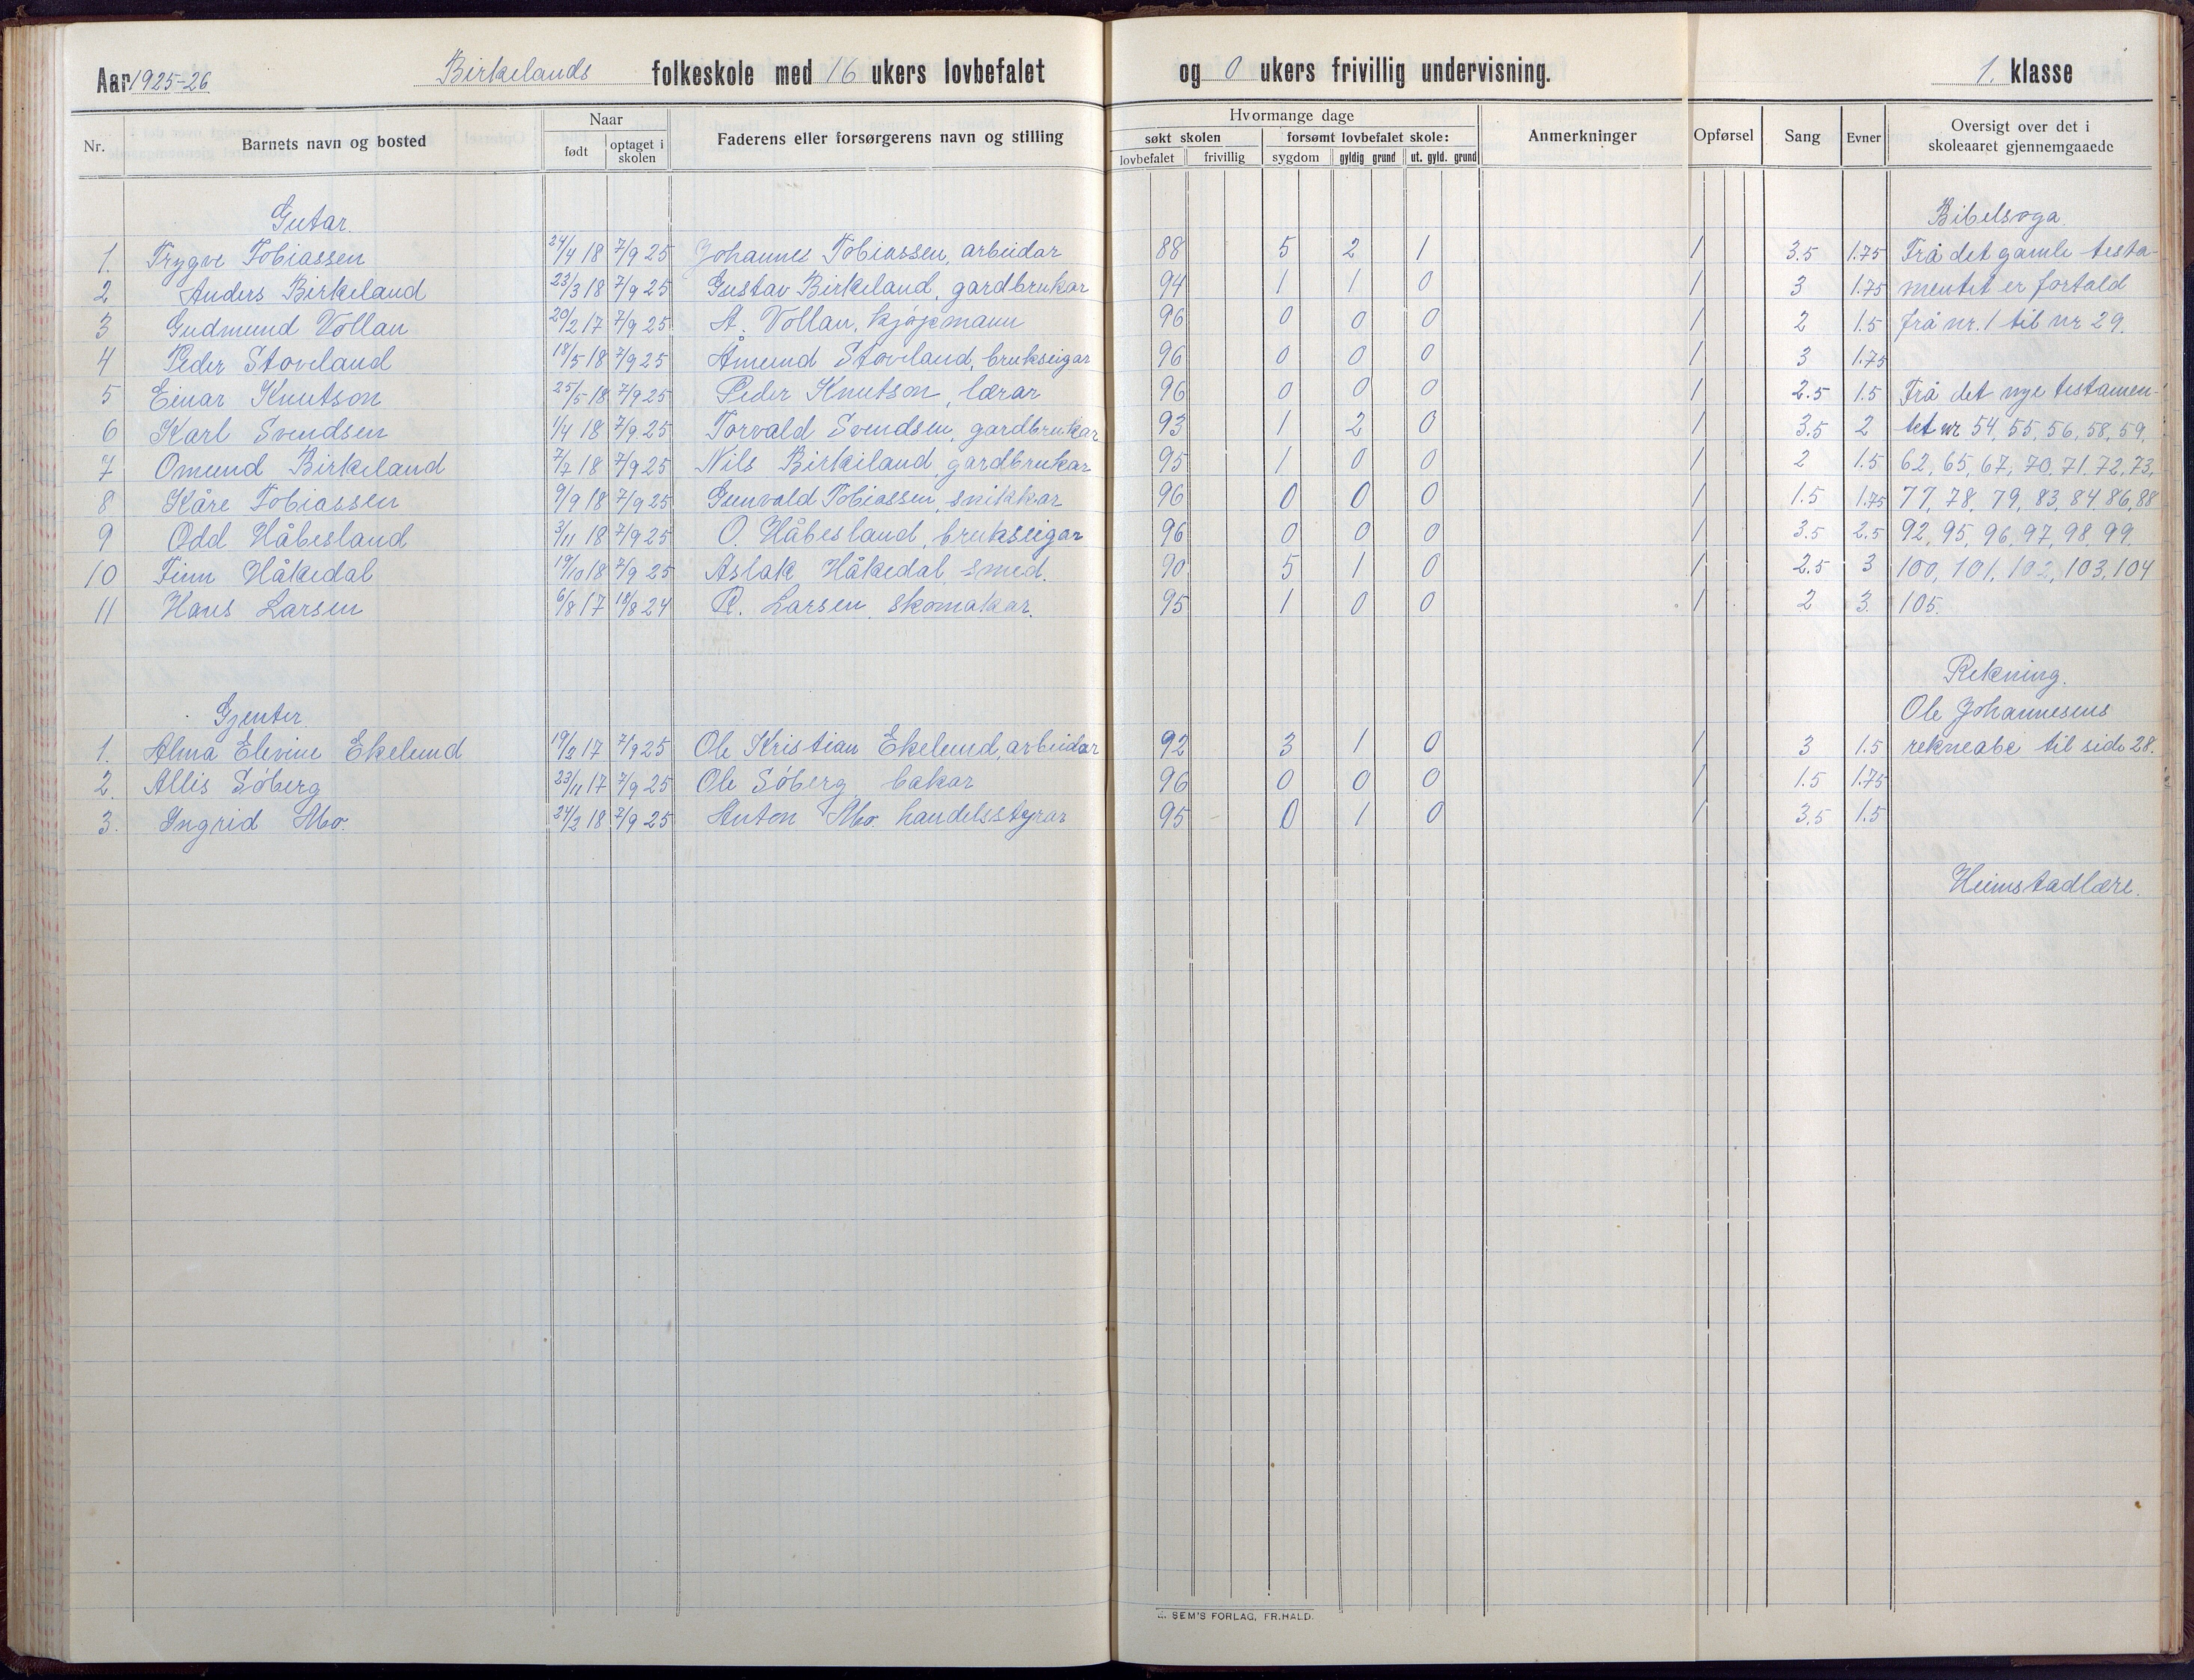 Aar 1925-26 Birkelands folkeskole med 16 ukers lovbefalet og 0 ukers frivillig undervisning. 1. klasse
Nr. Barnets navn og bosted Naar født optaget i skolen Faderens eller forsørgerens navn og stilling Hvormange dage søkt skolen lovbefalet frivillig forsømt lovbefalet skole: sygdom gyldig grund ut. gyld. grund Anmerkninger Opførsel Sang Evner Oversigt over det i skoleaaret gjennemgaaede
Gutar. Bibelsoga.
1. Trygve Tobiassen 24/4 18 7/9 25 Johannes Tobiassen, arbeidar 88 5 2 1 1 3.5 1.75 Frå det gamle testa-
2 Anders Birkeland 23/3 18 7/9 25 Gustav Birkeland, gardbrukar 94 1 1 0 1 3 1.75 mentet er fortald
3 Gudmund Vollan 20/2 17 7/9 25 A. Vollan, kjøpmann 96 0 0 0 1 2 1.5 frå nr. 1 til nr 29.
4 Peder Stoveland 18/5 18 7/9 25 Åmund Stoveland, brukseigar 96 0 0 0 1 3 1.75
5 Einar Knutson 25/5 18 7/9 25 Peder Knutson, lærar 96 0 0 0 1 2.5 1.5 Frå det nye testamen-
6 Karl Svendsen 1/4 18 7/9 25 Torvald Svendsen, gardbrukar 93 1 2 0 1 3.5 2 tet nr 54, 55, 56, 58, 59,
7 Omund Birkeland 7/7 18 7/9 25 Nils Birkeland, gardbrukar 95 1 0 0 1 2 1.5 62, 65, 67, 70, 71, 72, 73,
8 Kåre Tobiassen 9/9 18 7/9 25 Gunvald Tobiassen, snikkar 96 0 0 0 1 1.5 1.75 77, 78, 79, 83, 84, 86, 88
9 Odd Håbesland 3/11 18 7/9 25 O. Håbesland, brukseigar 96 0 0 0 1 3.5 2.5 92, 95, 96, 97, 98, 99,
10 Finn Håkedal 19/10 18 7/9 25 Aslak Håkedal, smed. 90 5 1 0 1 2.5 3 100, 101, 102, 103, 104
11 Hans Larsen 6/8 17 18/8 24 R. Larsen, skomakar. 95 1 0 0 1 2 3. 105.
Rekning.
Gjenter. Ole Johannesens
1. Alma Elevine Ekelund 19/2 17 7/9 25 Ole Kristian Ekelund, arbeidar 92 3 1 0 1 3 1.5 rekneabc til side 28.
2. Allis Søberg 23/11 17 7/9 25 Ole Søberg, bakar 96 0 0 0 1 1.5 1.75
3. Ingrid Mo. 24/2 18 7/9 25 Anton Mo. handelsstyrar 95 0 1 0 1 3.5 1.5
Heimstadlære.
SEM'S FORLAG, FR.HALD.